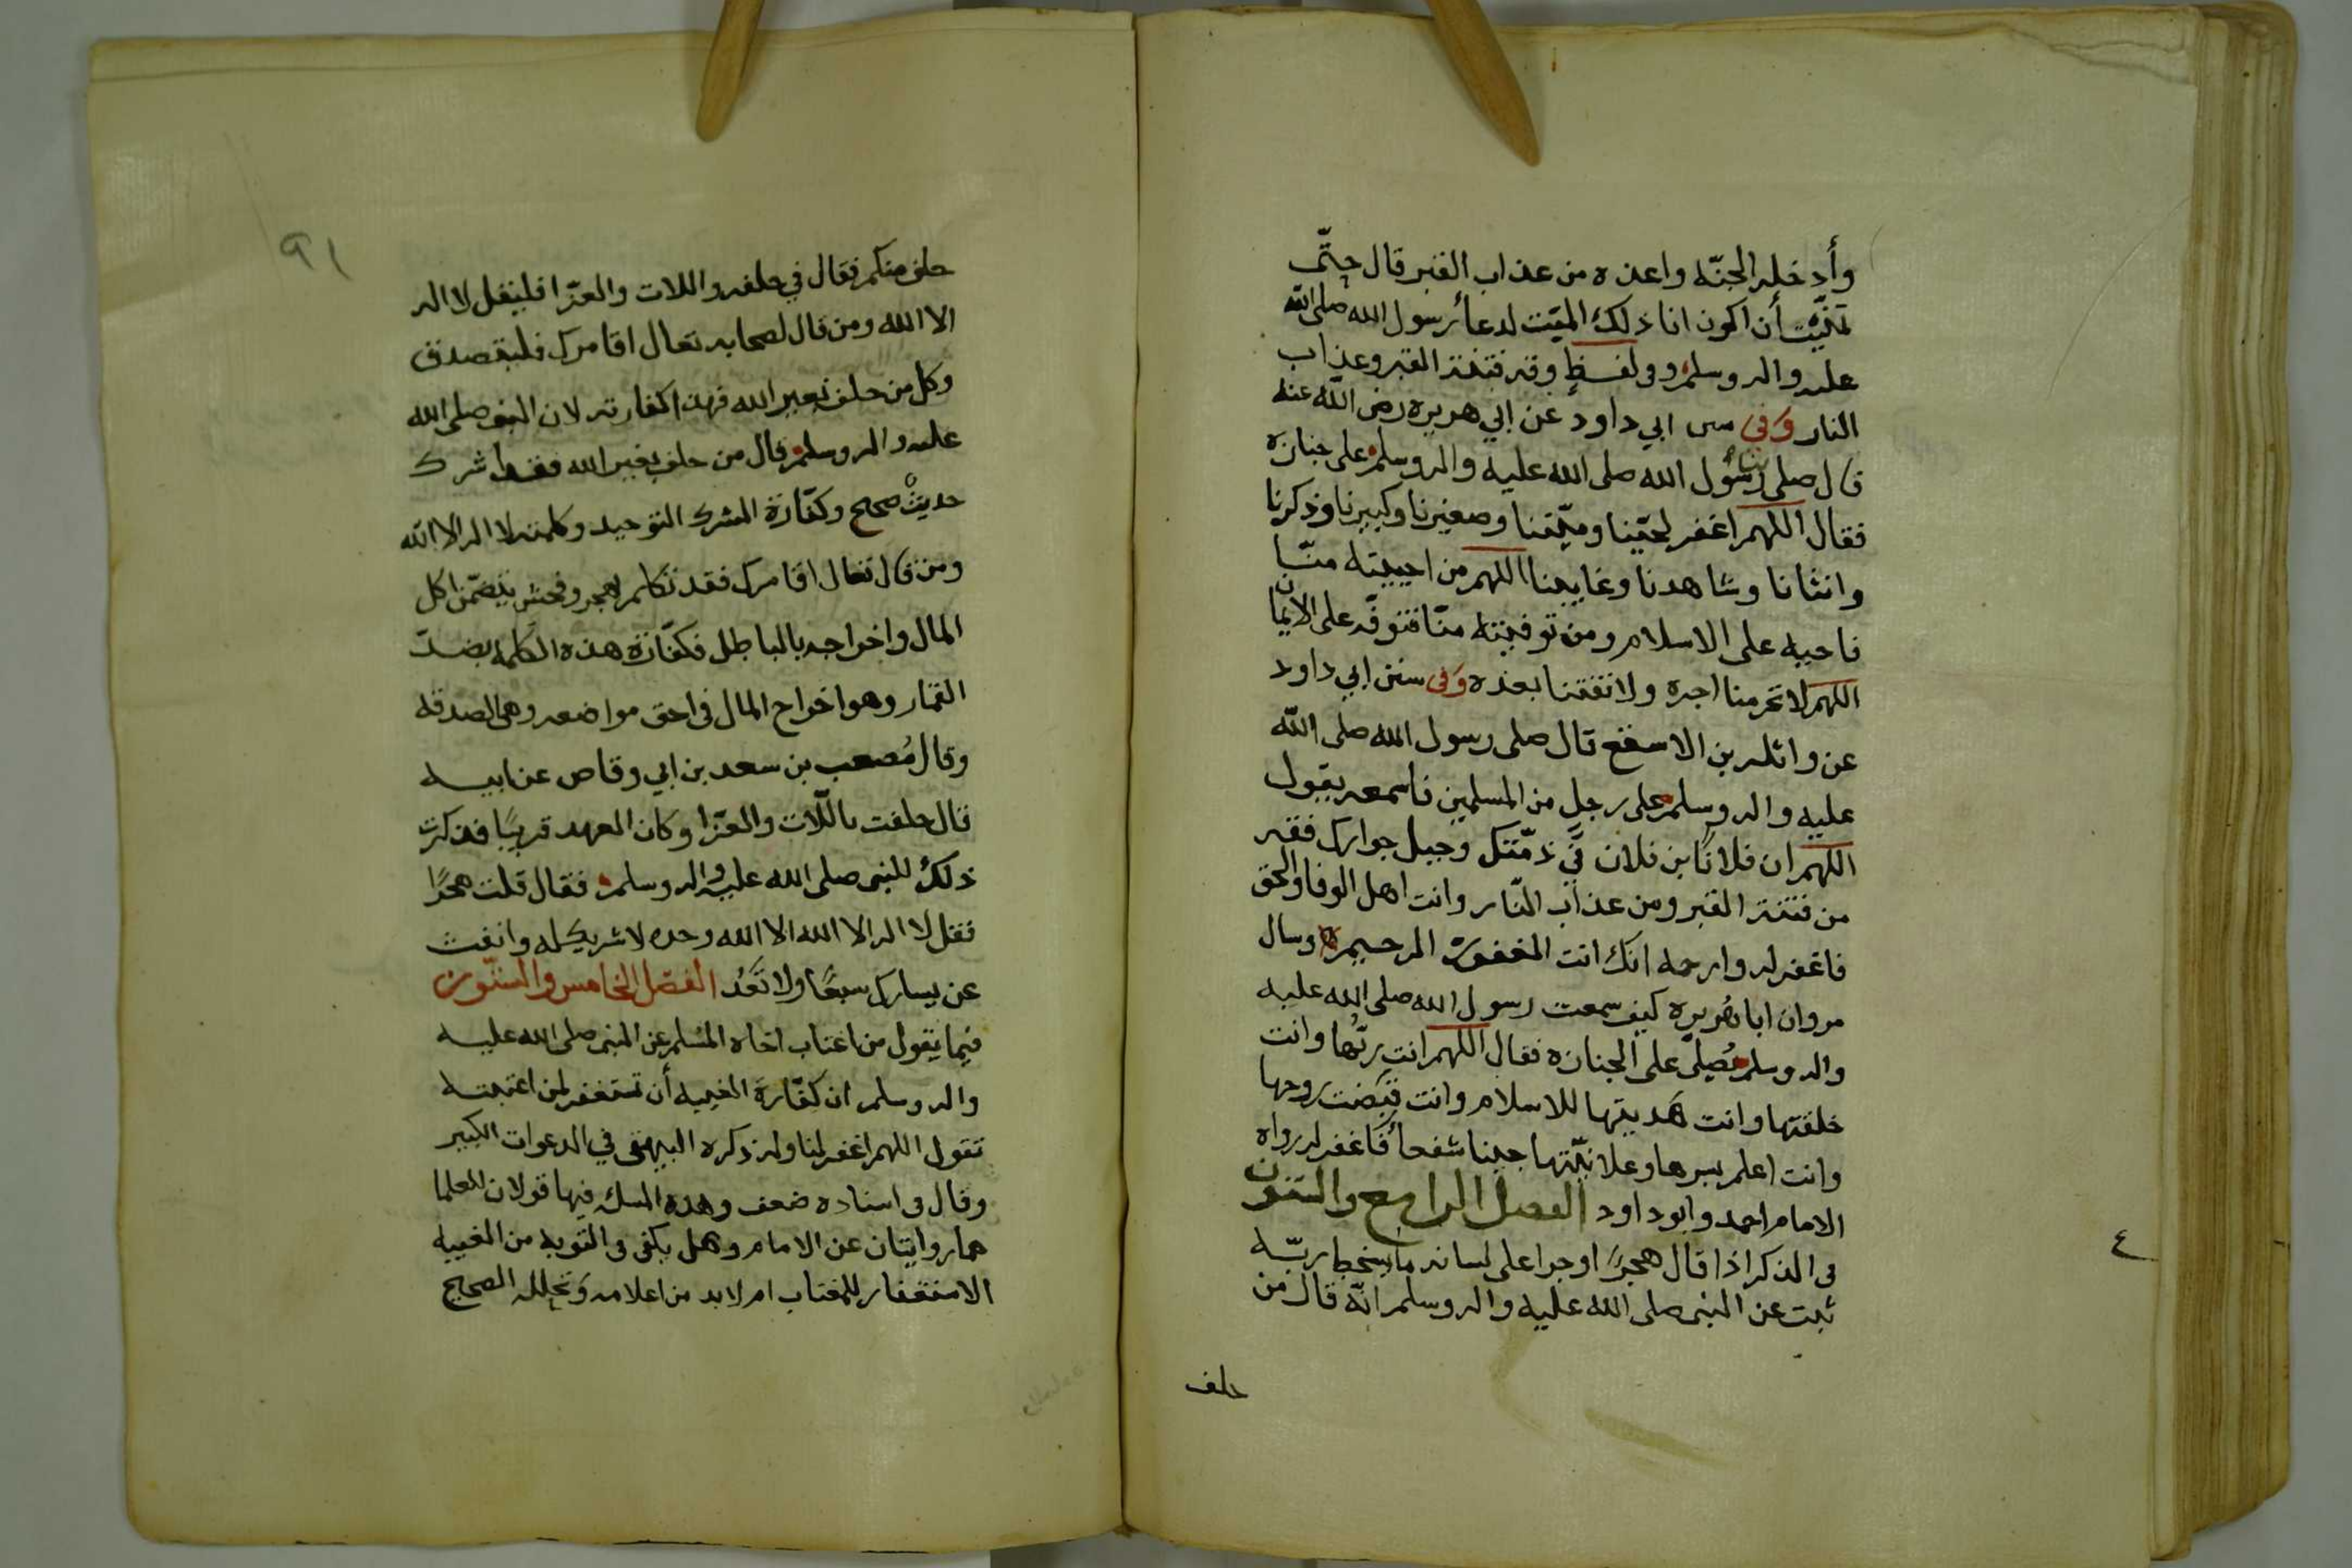 وأدخله الجنّه واعذه من عذاب القبر قال حتّى
تمنّيت أن اكون انا ذلك الميّت لدعاء رسول الله صلى الله
عليه واله وسلم وفى لفظٍ وقه فتنة القبر وعذاب
النار وفى سنن ابي داود عن ابي هريره رضى الله عنه
قال صلى بنا رسُول الله صلى الله عليه واله وسلم على جنازة
فقال اللهم اغفر لحيّنا وميّتنا وصغيرنا وكبيرنا وذكرنا
وانثانا وشاهدنا وغايبنا اللهم من احييته منّا
فاحيه على الاسلام ومن توفيته منّا فتوفّه على الايمان
اللهم لا تحرمنا اجره ولا تفتنا بعده وفى سنن ابي داود
عن واثله بن الاسقع قال صلى رسول الله صلى الله
عليه واله وسلم على رجل من المسلمين فاسمعه يقول
اللهم ان فلانًا بن فلان في ذمّتك وحبل جوارك فقه
من فتنة القبر ومن عذاب النّار وانت اهل الوفا والحق
فاغفر له وارحمه انك انت الغفور الرحيم وسال
مروان ابا هُريره كيف سمعت رسول الله صلى الله عليه
واله وسلم يُصلّى على الجنازه فقال اللهم انت ربّها وانت
خلقتها وانت هَديتها للاسلام وانت قبَضت روحها
وانت اعلم بسرها وعلانيّتها جينا شفعاء فاغفر له رواه
الامام احمد وابو داود الفصل الرابع والستون
فى الذكر اذا قال هجرًا او جرا على لسانه ما يسخط ربّه
ثبت عن النبى صلى الله عليه واله وسلم انّه قال من
حلف
٤
٩١
حلف منكم فقال في حلفه واللات والعزّا فليقل لا اله
الا الله ومن قال لصحابه تعال اقامرك فليتصدق
وكل من حلف بغير الله فهذا كفارته لان النبى صلى الله
عليه واله وسلم قال من حلف بغير الله فقد اشرك
حديثٌ صحيح وكفّارة الشرك التوحيد وكلمته لا اله الا الله
ومن قال تعال اقامرك فقد تكلم بهجر وفحش يتضمّن اكل
المال واخراجه بالباطل فكفّارة هذه الكلمه بضدّ
القمار وهو اخراج المال فى احق مواضعه وهى الصدقه
وقال مُصعب بن سعد بن ابي وقاص عن ابيه
قال حلفت باللّات والعزّا وكان العهد قريبًا فذكرت
ذلك للنبى صلى الله عليه واله وسلم فقال قلت هجرًا
فقل لا اله الا الله الا الله وحده لا شريك له وانفث
عن يسارك سبعًا ولا تَعُد الفصل الخامس والستّون
فيما يقول من اغتاب اخاه المُسلم عن النبى صلى الله عليه
واله وسلم ان كفّارة الغيبه أن تستغفر لمن اغتبته
تقول اللهم اغفر لنا وله ذكره البيهقى في الدعوات الكبير
وقال فى اسناده ضعف وهذه المسله فيها قولان للعلما
هما روايتان عن الامام وهل يكفى فى التوبه من الغيبه
الاستغفار للمغتاب ام لا بد من اعلامه وتحلله الصحيح